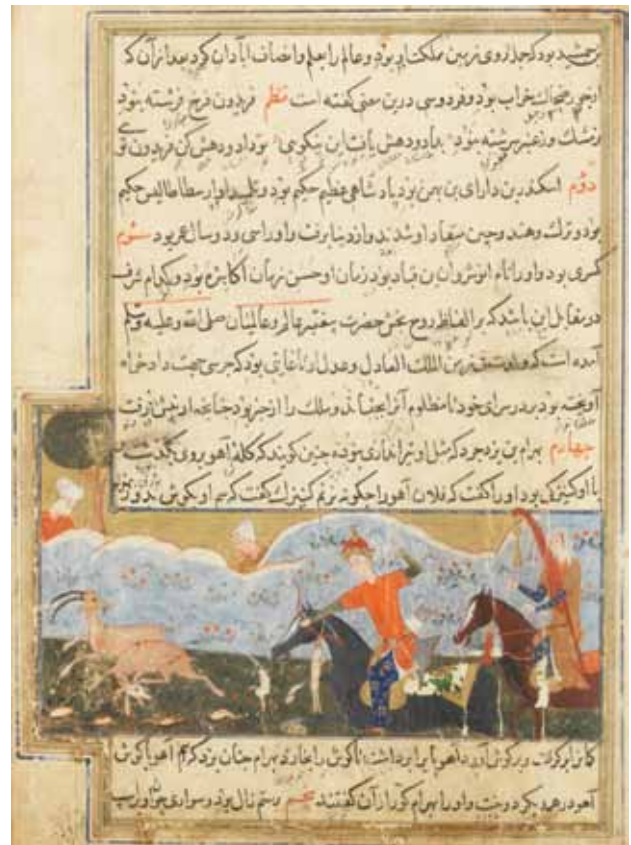 بن جمشید بود که جمله روی زمین مملکت او بود و عالم را بعلم و انصاف آبادان کرد بعد از آن که
از جور ضحاک خراب بود و فردوسی درین معنی گفته است نظم فریدون فرخ فرشته نبود
ز مشک و ز عنبر سرشته نبود بداد و دهش یافت این نیکوی تو داد و دهش کن فریدون توی
دوم اسکندر بن دارای بن بهمن بود پادشاهی عظیم حکیم بود و تلمیذ او ارسطاطالیس حکیم
بود و ترک و هند و چین منقاد او شدند و از دنیا رفت و اورا سی و دو سال عمر بود سوم
کسری بود و اورا نام انوشروان بن قباد بود زمان او حسن زمان اکابره بود و کدام شرف
در مقابل این باشد که بر الفاظ روح بخش حضرت پیغمبر عالم و عالمیان صلی الله علیه وسلم
آمده است که ولدت فی زمن الملک العادل و عدل او تا غایتی بود که جرسی جهت دادخواه
آویخته بود بر در سرای خود تا مظلوم آنرا بجنباند و سلک را از خر بود چنانچه
چهارم بهرام بن یزدجرد که مثل او تیراندازی نبوده چنین گویند که کله آهو بروی بگذشت
با او کنیزکی بود اورا گفت که فلان آهو را چگونه بزنم کنیزک گفت که سم او بگوش بدوز
کمان بر گرفت و بر گوش آورد آهو پا برداشت تا گوش را بخارد بهرام چنان بزد که سم آهو با گوش
آهو در هم یکر دوخت و اورا بهرام گور از آن گفتند پنجم رستم زال بود و سواری چون او